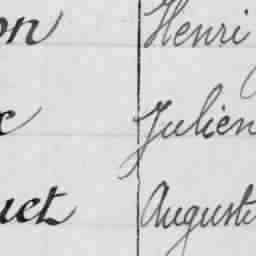 on Henri
c Julien
uct Auguste